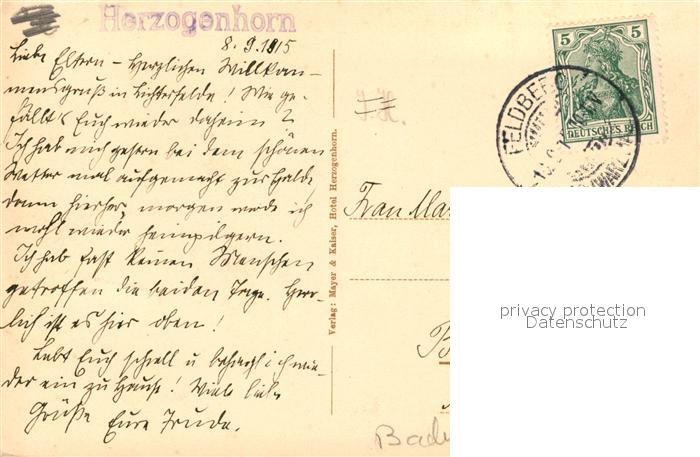 Herzogenhorn
8. 9. 1915
Liebe Eltern – Herzlichen Willkom-
mensgruß in Lichterfelde! Wie ge-
fällt's Euch wieder daheim?
Ich hab mich gestern bei dem schönen
Wetter mal aufgemacht zur Halde,
dann hierher, morgen werde ich
wohl wieder heimpilgern.
Ich hab fast keinen Menschen
getroffen die beiden Tage. Herr-
lich ist es hier oben!
Lebt Euch schnell u behaglich wie-
der ein zu Hause! Viele liebe
Grüße Eure Trude.
Verlag: Mayer & Kaiser, Hotel Herzogenhorn.
5 5
DEUTSCHES REICH
FELDBERG
SCHWARZW
Frau Mar
B
Bad
privacy protection
Datenschutz